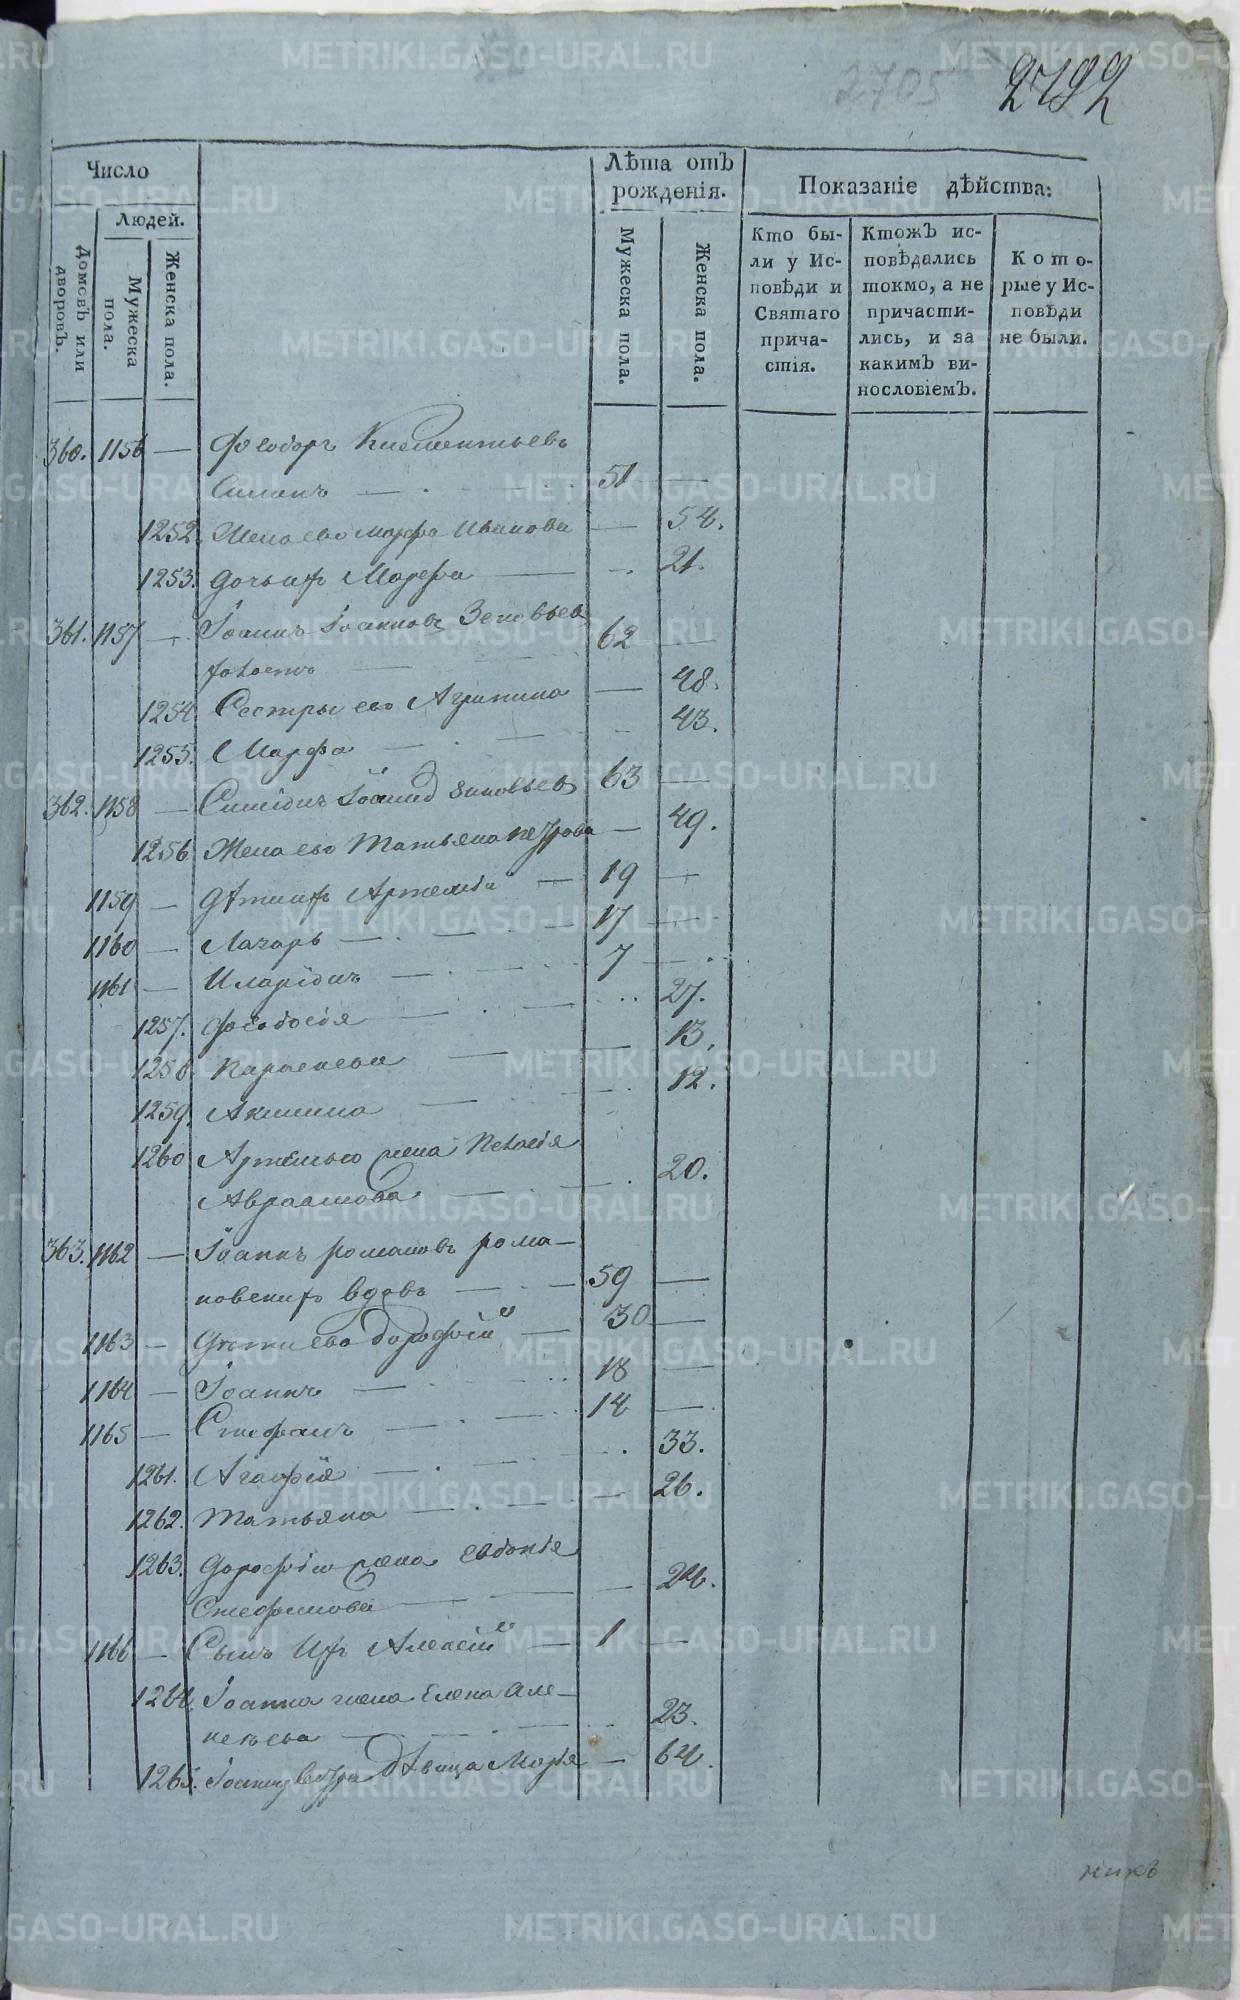 2705
2792
Число
Людей.
Домовъ или дворовъ.
Мужеска пола.
Женска пола.
Лѣта отъ рожденія.
Мужеска пола.
Женска пола.
Показаніе дѣйства:
Кто бы-
ли у Ис-
повѣди и
Святаго
прича-
стія.
Ктожъ ис-
повѣдались
токмо, а не
причасти-
лись, и за
какимъ ви-
нословіемъ.
Кото-
рые у Ис-
повѣди
не были.
360. 1156 — Феодоръ Климентьевъ
— 51 —
1252. Жена ево Марфа Иванова — 54.
1253. Дочь ихъ Марфа — 21.
361. 1157 — Іоаннъ Іоанновъ Зеновьев
62 —
1254. Сестры ево Агрипина — 48.
1255. Марфа — 43.
362. 1158 — Іоаннов Зиновьев 63 —
1256 Жена ево Татьяна Петрова — 49.
1159 — Дѣти ихъ Артемій — 19 —
1160 — Лазарь — 17 —
1161 — Иларіонъ — 7 —
1257. Феодосія — 27.
1258. Параскева — 13.
1259. Акилина — 12.
1260 Артемью жена Пелагія
Авраамова — 20.
363. 1162 — Іоаннъ Романовъ Рома-
новскихъ вдовъ — 59 —
1163 — Дѣти ево Дорофей — 30 —
1164 — Іоаннъ — 18 —
1165 — Стефанъ — 14 —
1261. Агафія — 33.
1262. Татьяна — 26.
1263. Дорофею жена Евдокія
Стефанова — 24.
1166 — Сынъ ихъ Алексій — 1 —
1264. Іоанна жена Елена Але-
ксѣева — 23.
1265. Іоанну сестра дѣвица Марія — 64.
никъ
METRIKI.GASO-URAL.RU